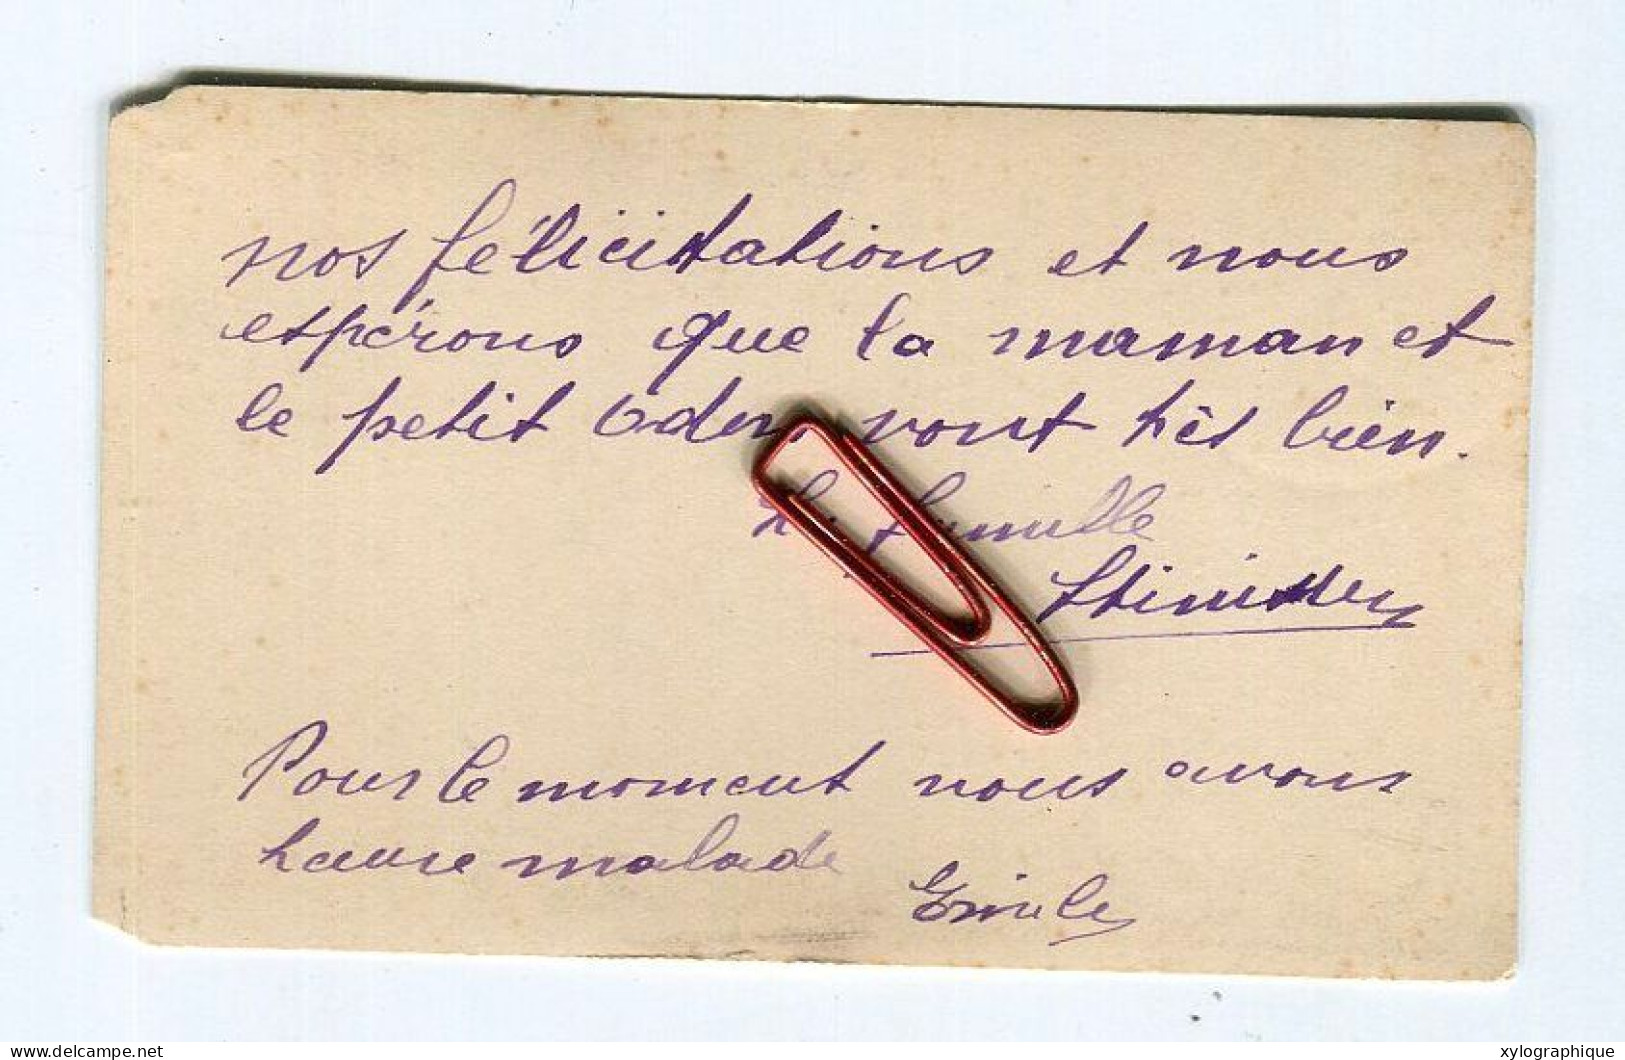 nos félicitations et nous
espérons que la maman et
le petit vont très bien.
La famille
Pour le moment nous avons
Laure malade
Emile
xylographique